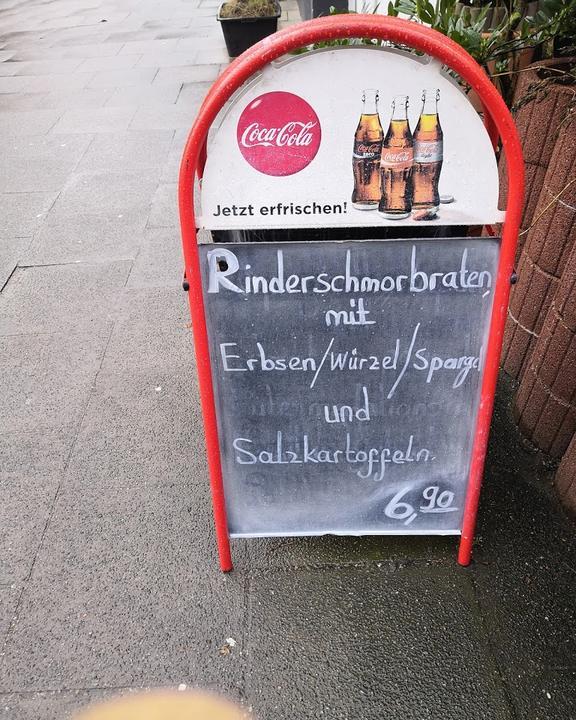 Coca-Cola
Jetzt erfrischen!
Rinderschmorbraten
mit
Erbsen/Würzel/Spargel
und
Salzkartoffeln.
6,90